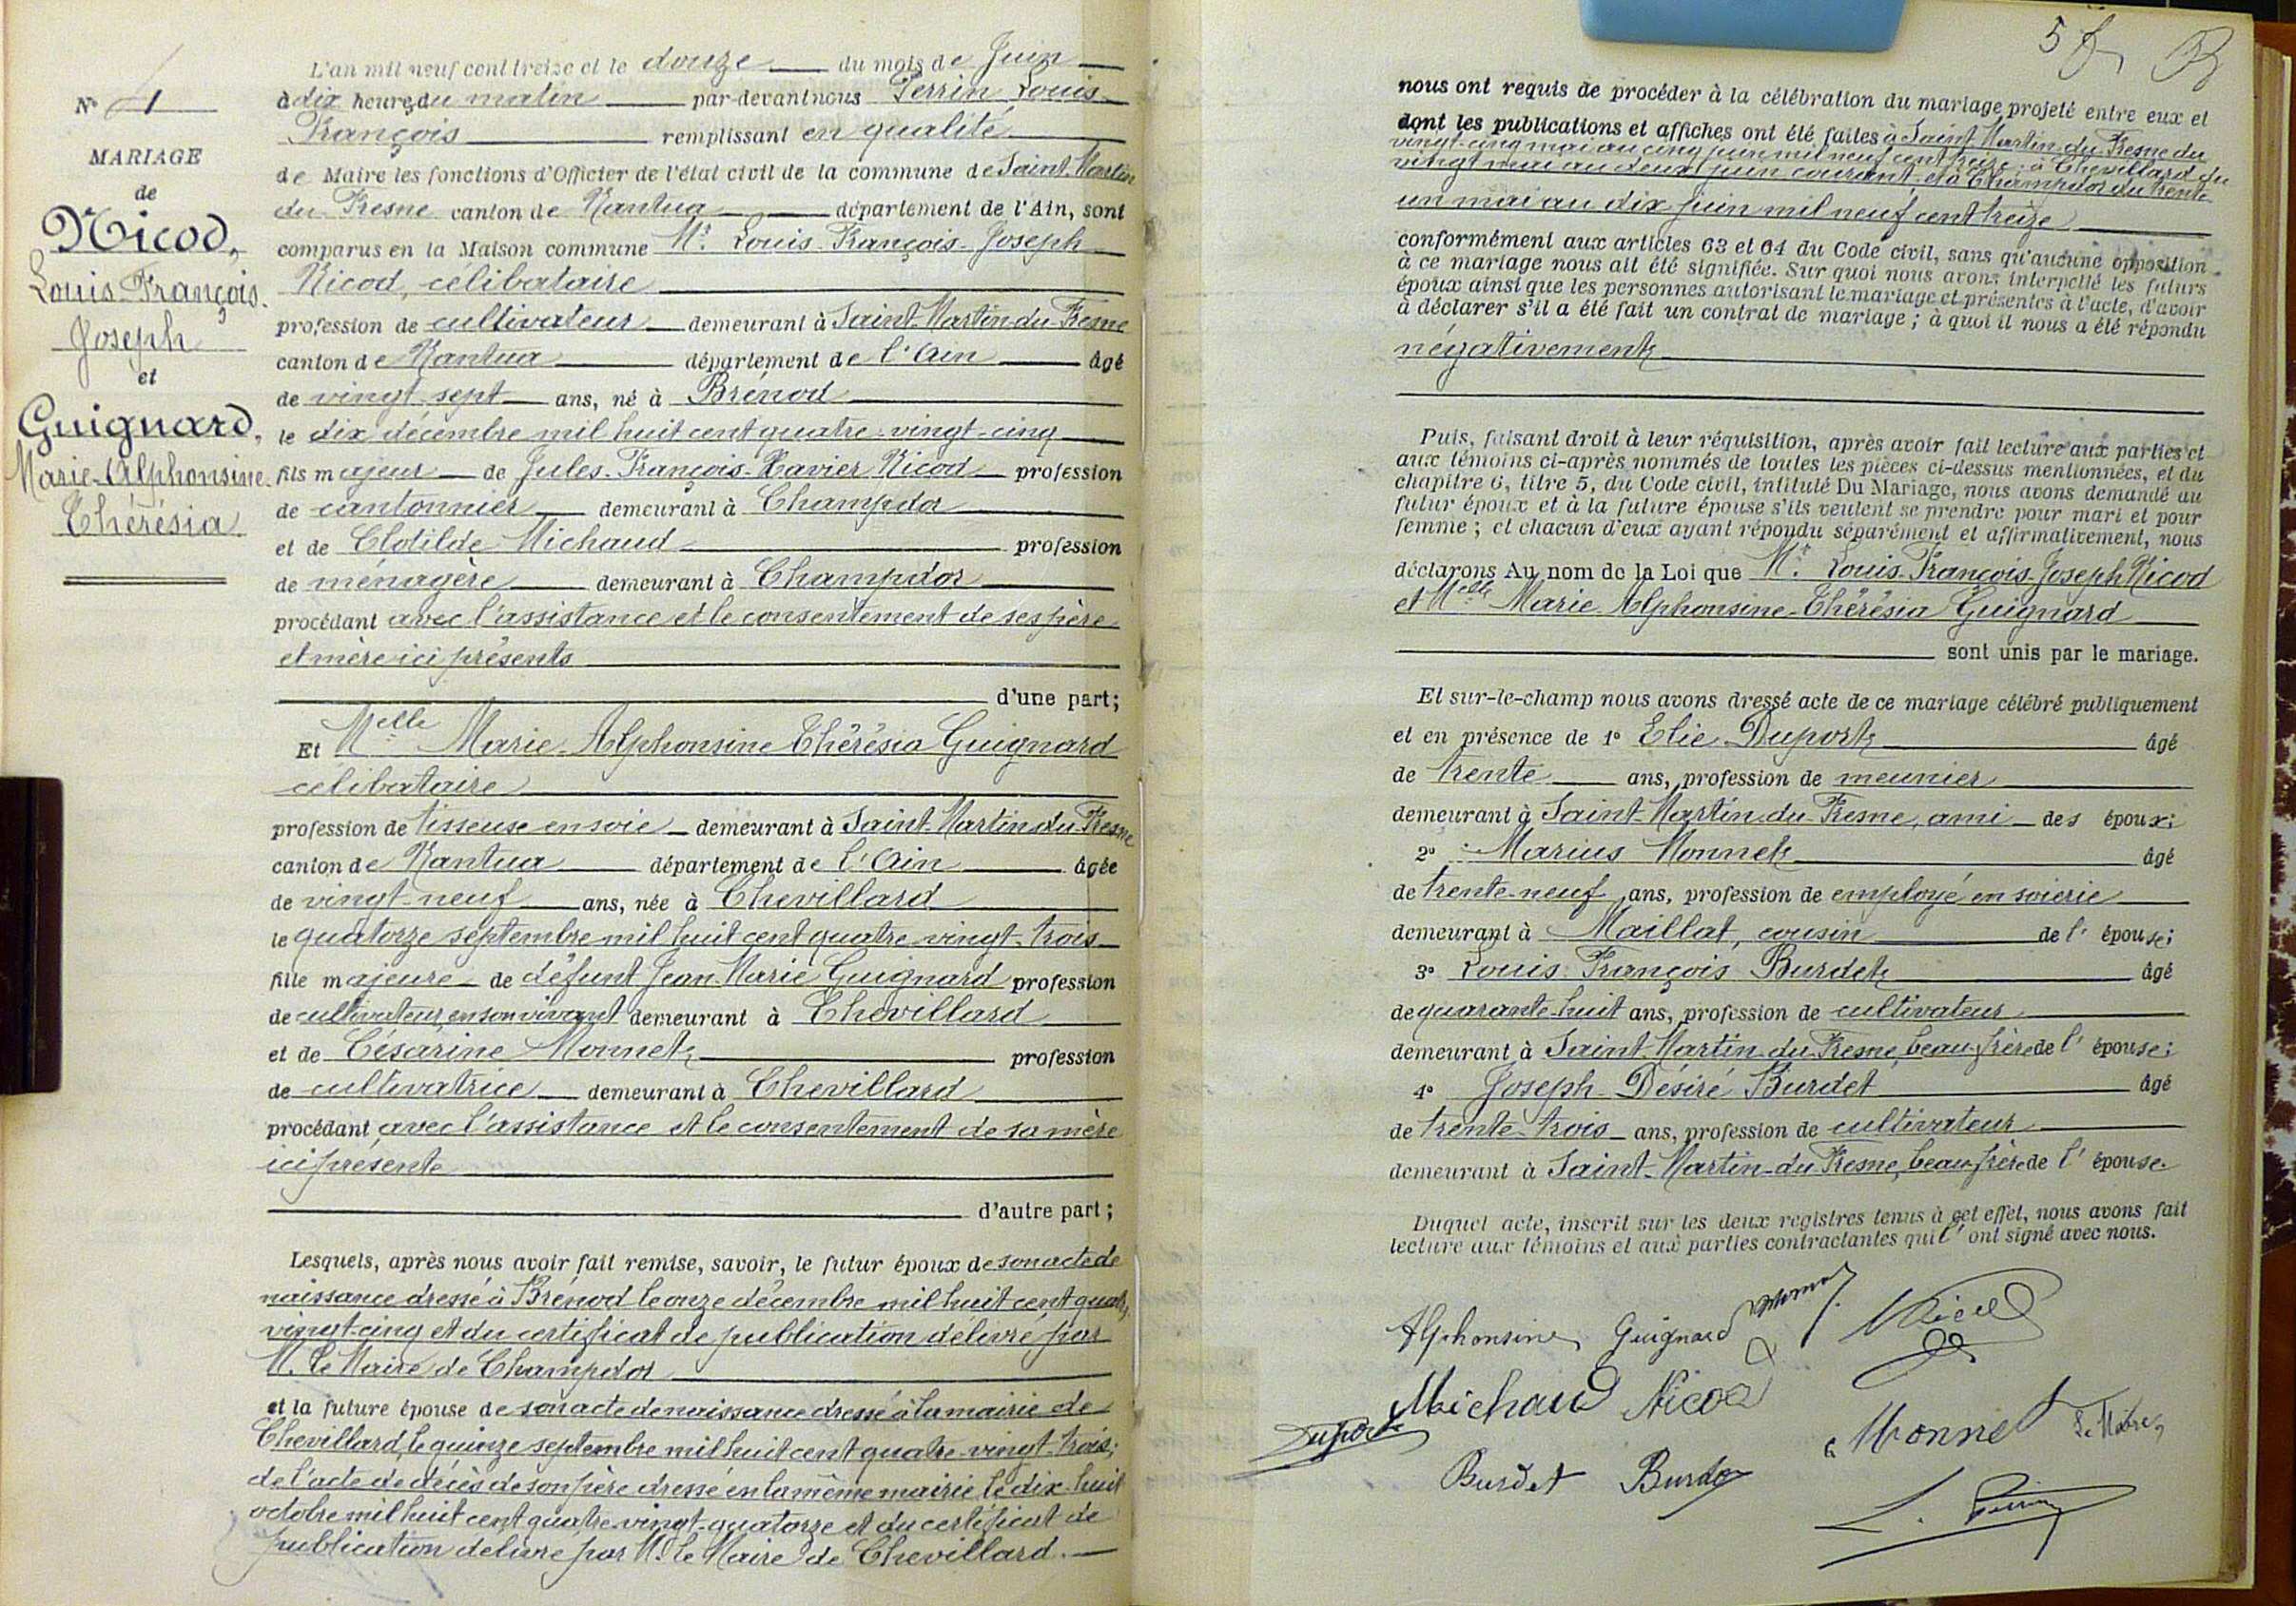 N° 1
MARIAGE
de
Nicod,
Louis-François-
Joseph
et
Guignard,
Marie-Alphonsine-
Thérésia
L'an mil neuf cent treize et le douze du mois de Juin
à dix heures du matin par-devant nous Perrin Louis-
François remplissant en qualité
de Maire les fonctions d'Officier de l'état civil de la commune de Saint-Martin
du-Fresne canton de Nantua département de l'Ain, sont
comparus en la Maison commune Mr. Louis-François-Joseph
Nicod, célibataire
profession de cultivateur demeurant à Saint-Martin-du-Fresne
canton de Nantua département de l'Ain âgé
de vingt-sept ans, né à Brénod
le dix décembre mil huit cent quatre-vingt-cinq
fils majeur de Jules-François-Xavier Nicod profession
de cantonnier demeurant à Champdor
et de Clotilde Michaud profession
de ménagère demeurant à Champdor
procédant avec l'assistance et le consentement de ses père
et mère ici présents
d'une part;
Et Melle Marie-Alphonsine-Thérésia Guignard
célibataire
profession de tisseuse en soie demeurant à Saint-Martin-du-Fresne
canton de Nantua département de l'Ain âgée
de vingt-neuf ans, née à Chevillard
le quatorze septembre mil huit cent quatre-vingt-trois
fille majeure de défunt Jean-Marie Guignard profession
de cultivateur, en son vivant demeurant à Chevillard
et de Césarine Monnet profession
de cultivatrice demeurant à Chevillard
procédant avec l'assistance et le consentement de sa mère
ici présente
d'autre part;
Lesquels, après nous avoir fait remise, savoir, le futur époux de son acte de
naissance dressé à Brénod le onze décembre mil huit cent quatre-
vingt-cinq et du certificat de publication délivré par
M. le Maire de Champdor
et la future épouse de son acte de naissance dressé à la mairie de
Chevillard, le quinze septembre mil huit cent quatre-vingt-trois;
de l'acte de décès de son père dressé en la même mairie le dix-huit
octobre mil huit cent quatre-vingt-quatorze et du certificat de
publication délivré par M. le Maire de Chevillard.
5
nous ont requis de procéder à la célébration du mariage projeté entre eux et
dont les publications et affiches ont été faites à Saint-Martin-du-Fresne du
vingt-cinq mai au cinq juin mil neuf cent treize, à Chevillard du
vingt mai au deux juin courant et à Champdor du trente
un mai au dix juin mil neuf cent treize
conformément aux articles 63 et 64 du Code civil, sans qu'aucune opposition
à ce mariage nous ait été signifiée. Sur quoi nous avons interpellé les futurs
époux ainsi que les personnes autorisant le mariage et présentes à l'acte, d'avoir
à déclarer s'il a été fait un contrat de mariage; à quoi il nous a été répondu
négativement
Puis, faisant droit à leur réquisition, après avoir fait lecture aux parties et
aux témoins ci-après nommés de toutes les pièces ci-dessus mentionnées, et du
chapitre 6, titre 5, du Code civil, intitulé Du Mariage, nous avons demandé au
futur époux et à la future épouse s'ils veulent se prendre pour mari et pour
femme; et chacun d'eux ayant répondu séparément et affirmativement, nous
déclarons Au nom de la Loi que Mr. Louis-François-Joseph Nicod
et Melle Marie-Alphonsine-Thérésia Guignard
sont unis par le mariage.
Et sur-le-champ nous avons dressé acte de ce mariage célébré publiquement
et en présence de 1° Elie Duport âgé
de trente ans, profession de meunier
demeurant à Saint-Martin-du-Fresne, ami des époux;
2° Marius Monnet âgé
de trente-neuf ans, profession de employé en soierie
demeurant à Maillat, cousin de l'épouse;
3° Louis-François Burdet âgé
de quarante-huit ans, profession de cultivateur
demeurant à Saint-Martin-du-Fresne, beau-frère de l'épouse;
4° Joseph-Désiré Burdet âgé
de trente-trois ans, profession de cultivateur
demeurant à Saint-Martin-du-Fresne, beau-frère de l'épouse.
Duquel acte, inscrit sur les deux registres tenus à cet effet, nous avons fait
lecture aux témoins et aux parties contractantes qui l'ont signé avec nous.
Alphonsine Guignard Nicod
Michaud Nicod
Duport Monnet Le Maire,
Burdet Burdet
L. Perrin